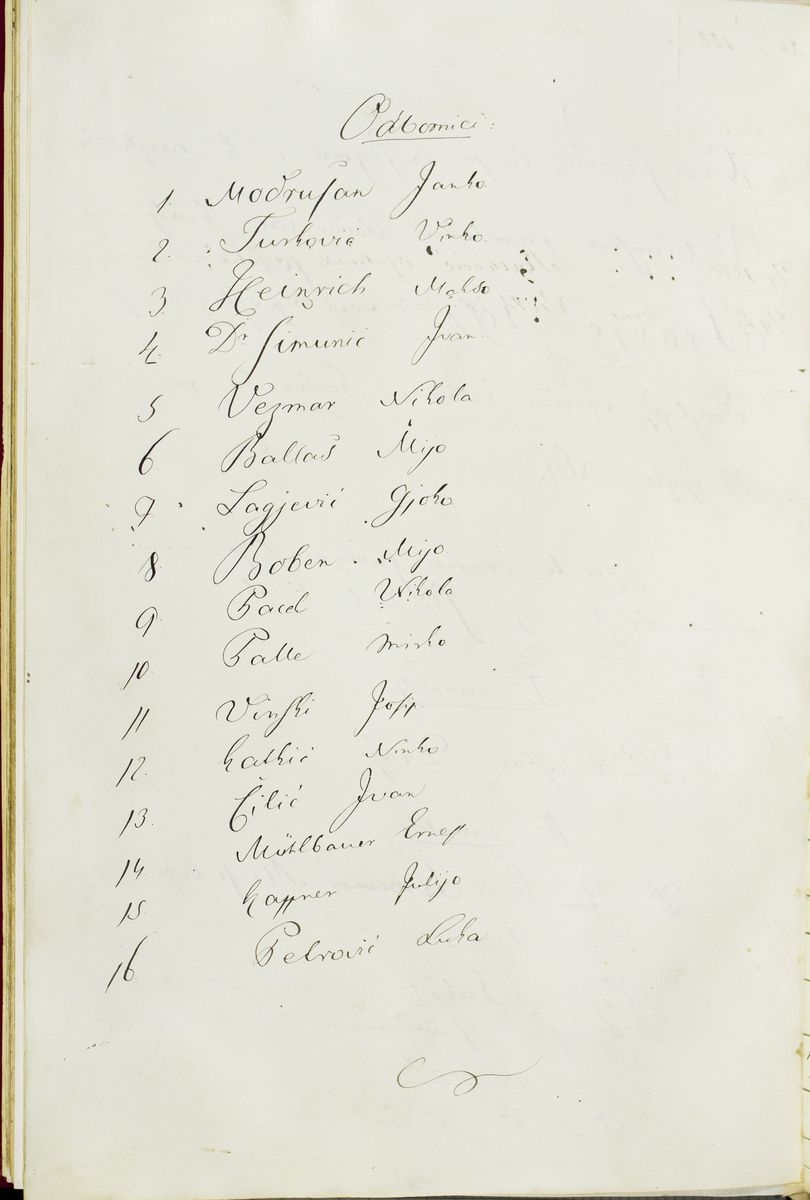 Odbornici:
1. Modrušan Janko
2. Turković Vinko
3. Heinrich Makso
4. Dr Šimunić Ivan
5 Vezmar Nikola
6 Ballaš Mijo
7 Lagjević Gjoko
8 Boben Mijo
9 Pacel Nikola
10 Palle Mirko
11 Vinski Josip
12. Katkić Ninko
13. Čilić Ivan
14 Mühlbauer Ernest
15 Kappner Julijo
16. Petrović Luka